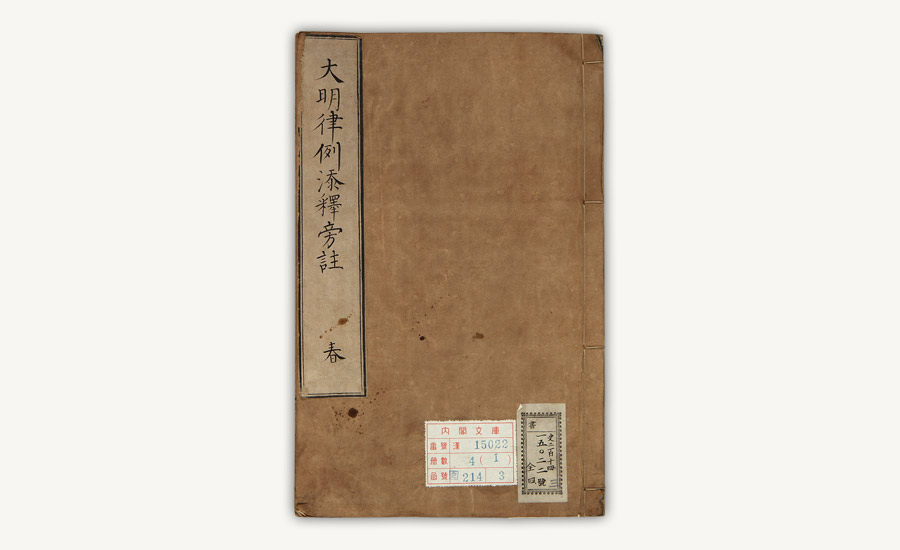 大明律例添釋旁註
春
內閣文庫
番號 漢 15022
冊數 4(1)
函號 214 3
書
史二百十四
一五〇二二號
全四
三